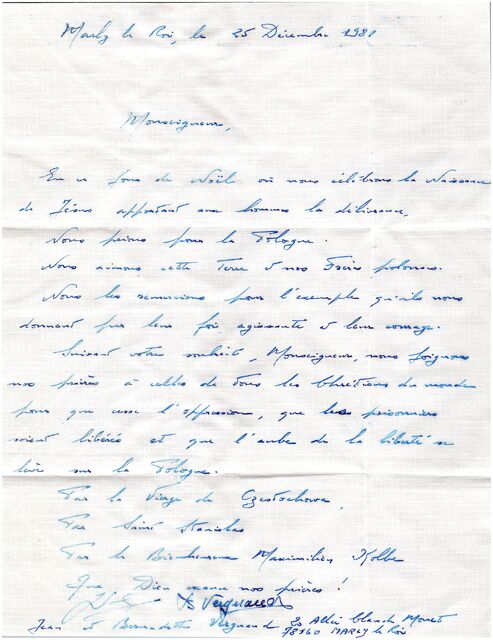 Marly le Roi, le 25 Décembre 1981
Monseigneur,
En ce jour de Noël où nous célébrons la Naissance
de Jésus apportant aux hommes la délivrance,
Nous prions pour la Pologne.
Nous aimons cette Terre et nos Frères polonais.
Nous les remercions pour l'exemple qu'ils nous
donnent par leur foi agissante et leur courage.
Suivant votre souhait, Monseigneur, nous joignons
nos prières à celles de tous les Chrétiens du monde
pour que cesse l'oppression, que les prisonniers
soient libérés et que l'aube de la liberté se
lève sur la Pologne.
Par la Vierge de Czestochowa,
Par Saint Stanislas
Par le Bienheureux Maximilien Kolbe
Que Dieu exauce nos prières !
B Vergnaud
Jean et Bernadette Vergnaud 20 Allée Claude Monet
78160 MARLY le Roi